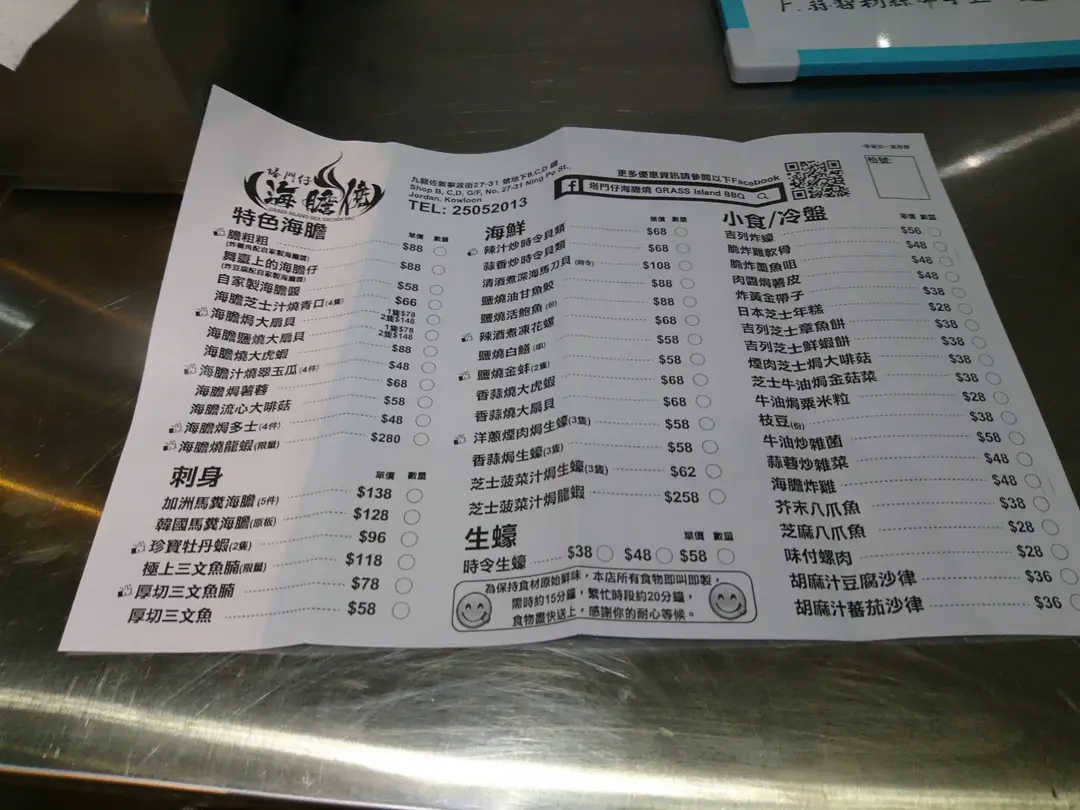 塔門仔
海膽燒
GRASS ISLAND SEA URCHIN BBQ
九龍佐敦寧波街27-31 號地下B,C,D 舖
Shop B, C,D, G/F, No. 27-31 Ning Po St.,
Jordan, Kowloon
TEL: 25052013
更多優惠資訊請參閱以下Facebook
f 塔門仔海膽燒 GRASS Island BBQ
枱號:
特色海膽 單價 數量
膽粗粗 $88
(炸薯角配自家製海膽醬)
舞臺上的海膽仔 $88
(炸豆腐配自家製海膽醬)
自家製海膽醬 $58
海膽芝士汁燒青口(4隻) $66
海膽焗大扇貝 1隻$78 2隻$148
海膽鹽燒大扇貝 1隻$78 2隻$148
海膽燒大虎蝦 $88
海膽汁燒翠玉瓜(4件) $48
海膽焗薯蓉 $68
海膽流心大啡菇 $58
海膽焗多士(4件) $48
海膽燒龍蝦(限量) $280
刺身 單價 數量
加洲馬糞海膽(5件) $138
韓國馬糞海膽(原板) $128
珍寶牡丹蝦(2隻) $96
極上三文魚腩(限量) $118
厚切三文魚腩 $78
厚切三文魚 $58
海鮮 單價 數量
辣汁炒時令貝類 $68
蒜香炒時令貝類 $68
清酒煮深海馬刀貝(時令) $108
鹽燒油甘魚鮫 $88
鹽燒活鮑魚(份) $88
辣酒煮凍花螺 $68
鹽燒白鱔(串) $58
鹽燒金蚌(2隻) $58
香蒜燒大虎蝦 $68
香蒜燒大扇貝 $68
洋蔥煙肉焗生蠔(3隻) $58
香蒜焗生蠔(3隻) $58
芝士菠菜汁焗生蠔(3隻) $62
芝士菠菜汁焗龍蝦 $258
生蠔 單價 數量
時令生蠔 $38 $48 $58
為保持食材原始鮮味，本店所有食物即叫即製，
需時約15分鐘，繁忙時段約20分鐘，
食物盡快送上，感謝你的耐心等候。
小食/冷盤 單價 數量
吉列炸蠔 $56
脆炸雞軟骨 $48
脆炸墨魚咀 $48
肉醬焗薯皮 $48
炸黃金帶子 $38
日本芝士年糕 $28
吉列芝士章魚餅 $38
吉列芝士鮮蝦餅 $38
煙肉芝士焗大啡菇 $38
芝士牛油焗金菇菜 $38
牛油焗粟米粒 $28
枝豆(份) $38
牛油炒雜菌 $58
蒜蓉炒雜菜 $48
海膽炸雞 $48
芥末八爪魚 $38
芝麻八爪魚 $28
味付螺肉 $28
胡麻汁豆腐沙律 $36
胡麻汁蕃茄沙律 $36